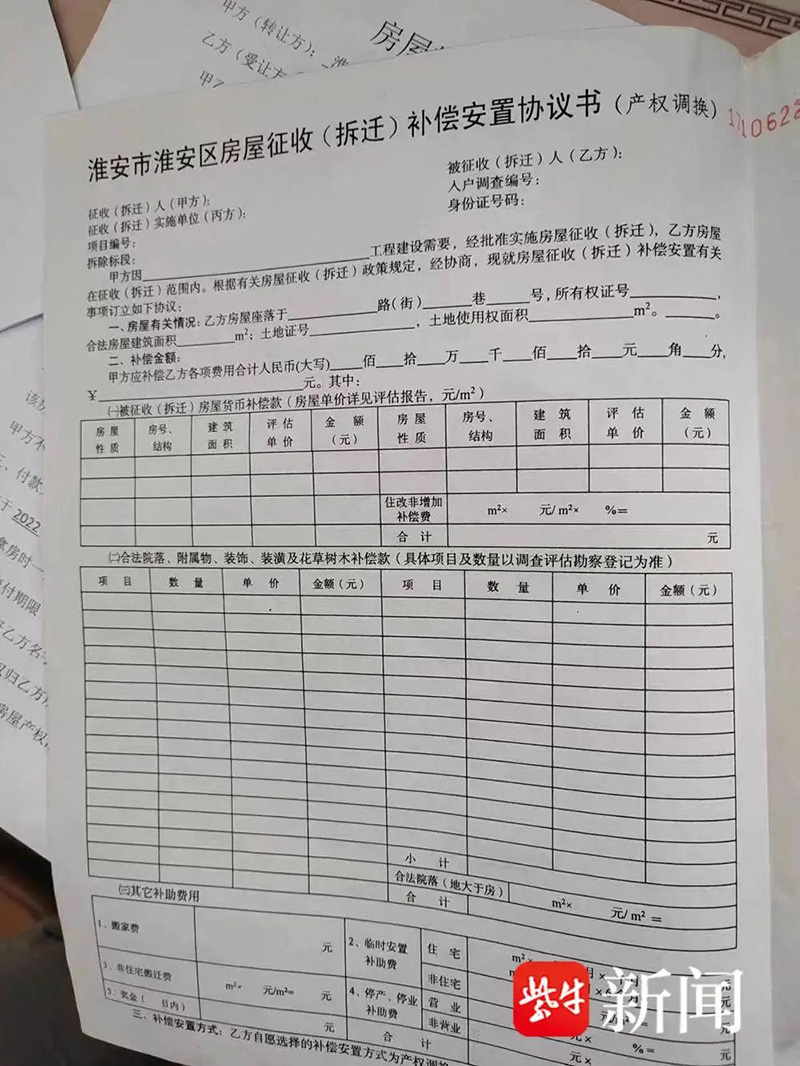 甲方（转让方）：
房屋
乙方（受让方
淮安市淮安区房屋征收（拆迁）补偿安置协议书（产权调换）
征收（拆迁）人（甲方）：
被征收（拆迁）人（乙方）：
征收（拆迁）实施单位（丙方）：
入户调查编号：
项目编号：
身份证号码：
拆除标段：
甲方因 工程建设需要，经批准实施房屋征收（拆迁），乙方房屋
在征收（拆迁）范围内。根据有关房屋征收（拆迁）政策规定，经协商，现就房屋征收（拆迁）补偿安置有关
事项订立如下协议：
一、房屋有关情况：乙方房屋座落于 路（街） 巷 号，所有权证号 ，
合法房屋建筑面积 m²；土地证号 ，土地使用权面积 m²。 。
二、补偿金额：
甲方应补偿乙方各项费用合计人民币(大写) 佰 拾 万 千 佰 拾 元 角 分，
￥ 元。其中：
㈠被征收（拆迁）房屋货币补偿款（房屋单价详见评估报告，元/m²）
房屋性质 房号、结构 建筑面积 评估单价 金额（元） 房屋性质 房号、结构 建筑面积 评估单价 金额（元）
住改非增加补偿费 m²× 元/m²× %=
合计 元
㈡合法院落、附属物、装饰、装潢及花草树木补偿款（具体项目及数量以调查评估勘察登记为准）
项目 数量 单价 金额（元） 项目 数量 单价 金额（元）
小计
合法院落（地大于房） m²× 元/m²=
合计
㈢其它补助费用
1、搬家费 元 2、临时安置补助费 住宅 m²×
非住宅
3、非住宅搬迁费 m²× 元/m²= 元 4、停产、停业补助费 营业
5、奖金（ 日内） 元 非营业
合计 元×
三、补偿安置方式：乙方自愿选择的补偿安置方式为产权调换
甲方不
三、付款
2022
拿房时一
付期限
乙方名
归乙方
房屋产权
紫牛新闻